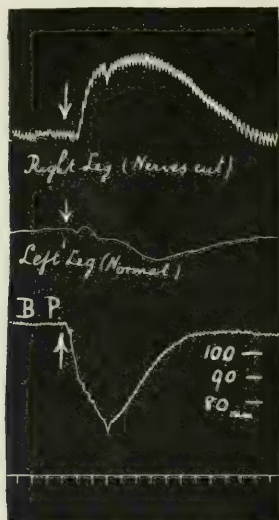 Right Leg (Nerves cut)
Left Leg (Normal)
B P.
100
90
80